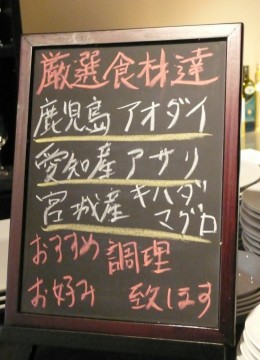 厳選食材達
鹿児島 アオダイ
愛知産 アサリ
宮城産 キハダ
マグロ
おすすめ 調理
お好み 致します